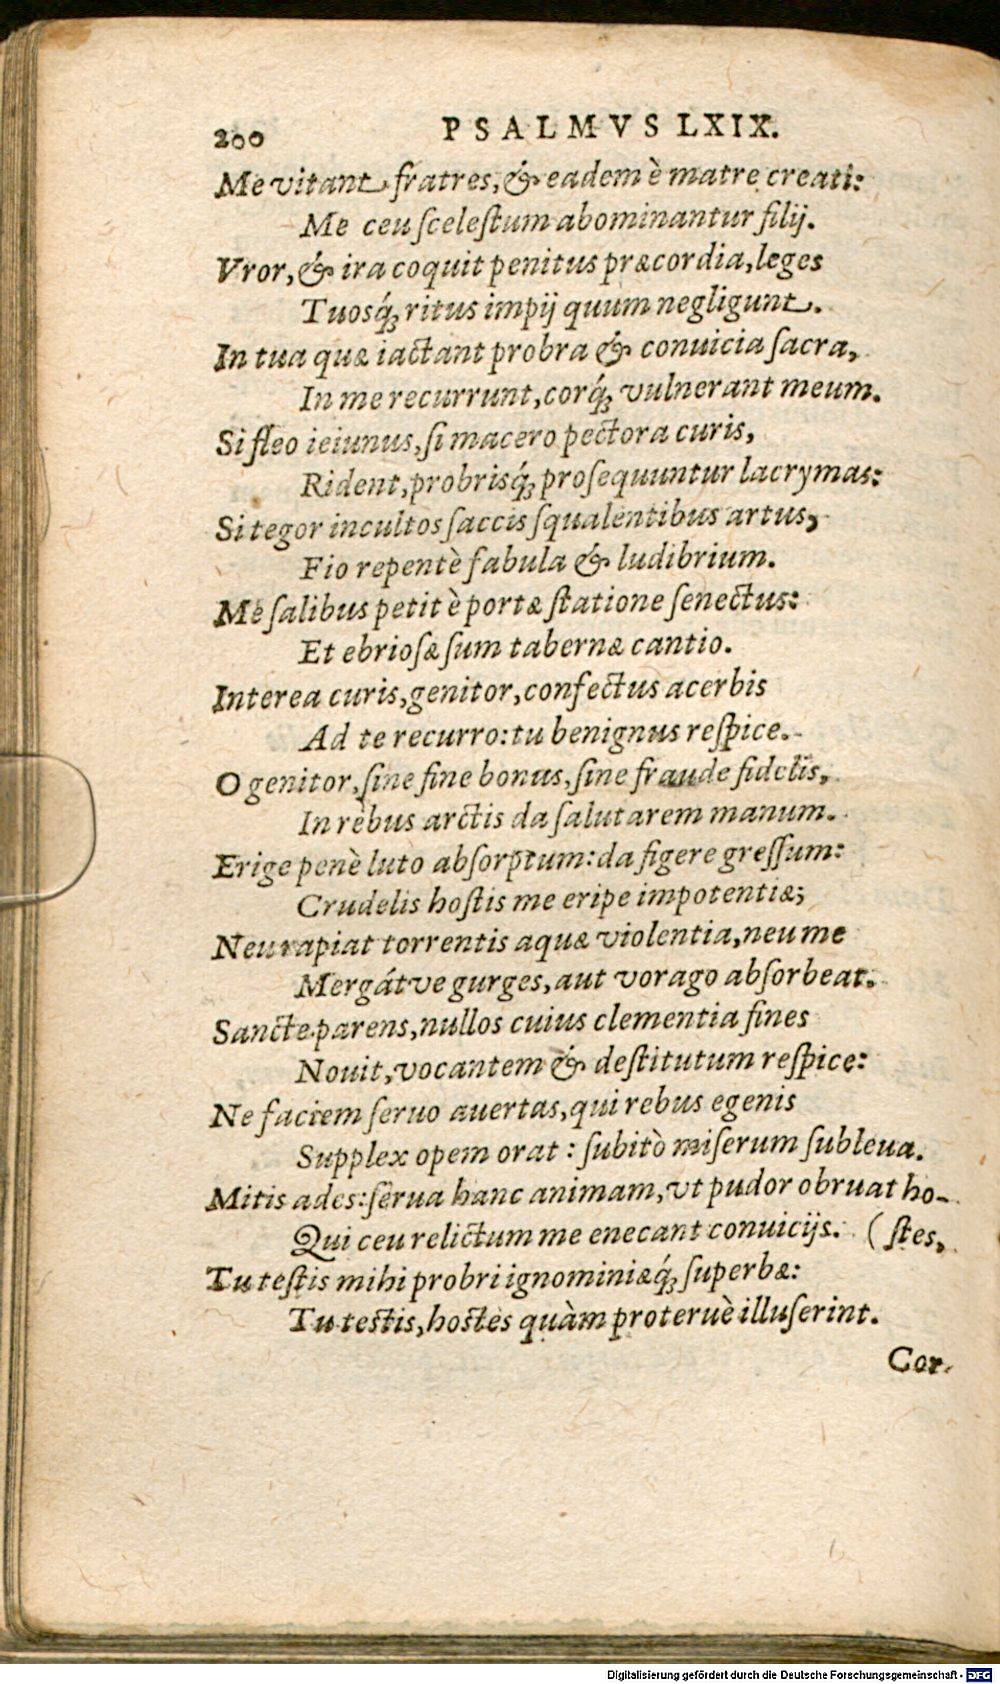 200 PSALMVS LXIX.
Me vitant fratres, & eadem è matre creati:
Me ceu ſceleſtum abominantur filij.
Vror, & ira coquit penitus præcordia, leges
Tuosq́ꝫ ritus impij quum negligunt.
In tua quæ iactant probra & conuicia ſacra,
In me recurrunt, corq́ꝫ vulnerant meum.
Si fleo ieiunus, ſi macero pectora curis,
Rident, probrisq́ꝫ proſequuntur lacrymas:
Si tegor incultos ſaccis ſqualentibus artus,
Fio repentè fabula & ludibrium.
Me ſalibus petit è portæ ſtatione ſenectus:
Et ebrioſæ ſum tabernæ cantio.
Interea curis, genitor, confectus acerbis
Ad te recurro: tu benignus reſpice.
O genitor, ſine fine bonus, ſine fraude fidelis,
In rebus arctis da ſalutarem manum.
Erige penè luto abſorptum: da figere greſſum:
Crudelis hoſtis me eripe impotentiæ;
Neu rapiat torrentis aquæ violentia, neu me
Mergátve gurges, aut vorago abſorbeat.
Sancte parens, nullos cuius clementia fines
Nouit, vocantem & deſtitutum reſpice:
Ne faciem ſeruo auertas, qui rebus egenis
Supplex opem orat : ſubitò miſerum ſubleua.
Mitis ades: ſerua hanc animam, vt pudor obruat ho-
Qui ceu relictum me enecant conuicijs. (ſtes,
Tu teſtis mihi probri ignominiæq́ꝫ ſuperbæ:
Tu teſtis, hoſtes quàm proteruè illuſerint.
Cor.
Digitalisierung gefördert durch die Deutsche Forschungsgemeinschaft - DFG